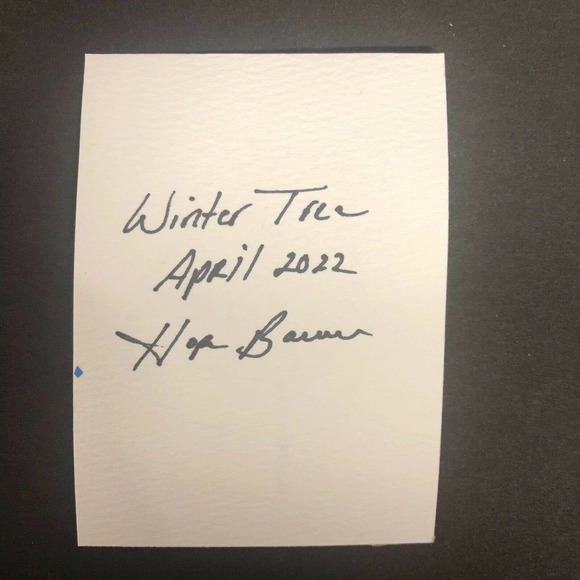 Winter Tree
April 2022
Hope